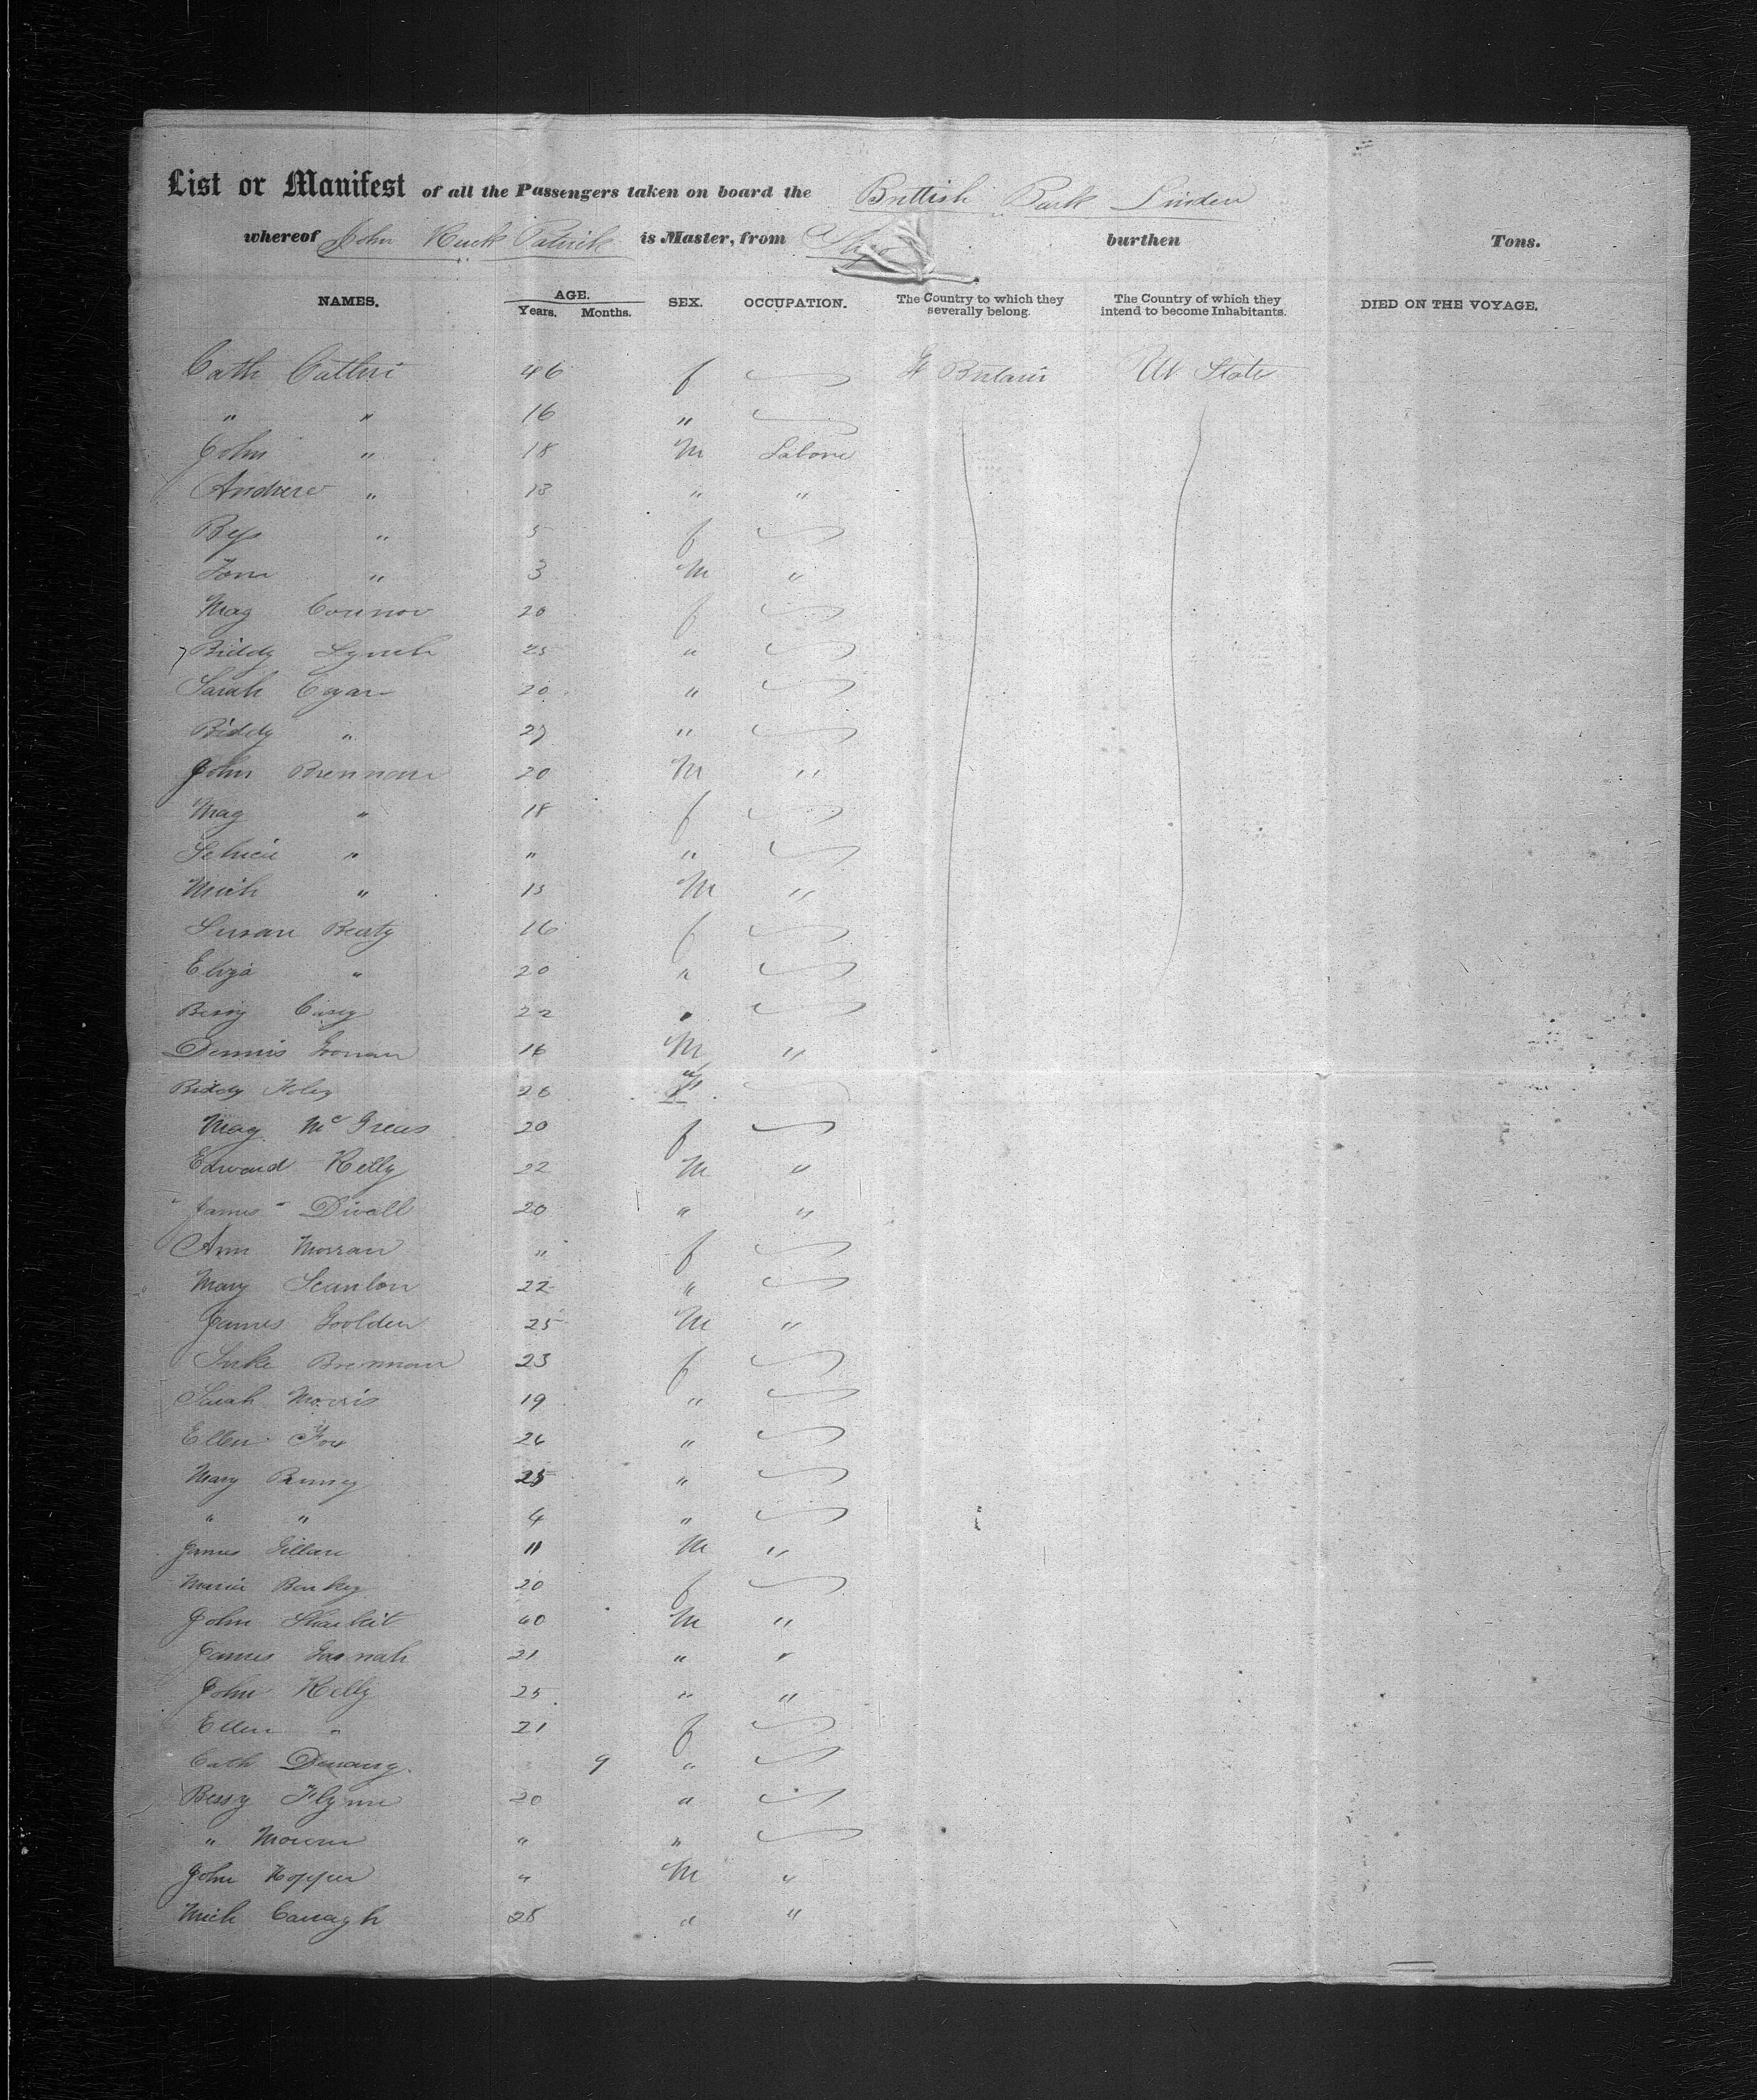 List or Manifest of all the Passengers taken on board the Brittish Bark Linden
whereof John Patrick is Master, from burthen Tons.
NAMES. AGE. Years. Months. SEX. OCCUPATION. The Country to which they severally belong. The Country of which they intend to become Inhabitants. DIED ON THE VOYAGE.
Cath 46 f Gt Britain Ud State
" " 16 "
John " 18 M Labore
Andrew " 13 " "
Bess " 5 f
Tom " 3 M "
Mag Connor 20 f
Biddy Lynch 25 "
Sarah Egan 20 "
Biddy " 27 "
John Brennan 20 M "
Mag " 18 f
" " "
Mich " 15 M "
Susan Beaty 16 f
Eliza " 20 "
Bessy Casey 22 "
Dennis Noonan 16 M "
Biddy Foley 26
Mag 20 f
Edward Kelly 22 M "
" James " Divall 20 " "
Ann Morran " f
Mary Scanlon 22 "
James Goolden 25 M "
Brennan 23 f
Sarah Morris 19 "
Ellen Fox 26 "
Mary 25 "
" " 4 "
James Gillan 11 M "
Maria 20 f
John 40 M "
James 21 " "
John Kelly 25 " "
Ellen " 21 f
Cath 9 "
Bessy Flynn 20 "
" " "
John Hopper " M "
Mich Canagh 28 " "